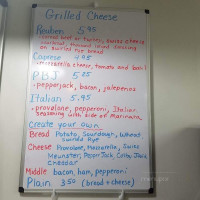 Grilled Cheese
Reuben 5.95
corned beef or turkey, swiss cheese
dressing
on swirled rye bread
Caprese 4.95
mozzarella cheese, tomato and basil
P.B.J. 5.25
• pepperjack, bacon, jalepenos
Italian 5.95
• provolone, pepperoni, Italian
seasoning with side of Marinara
Create your own
Bread Potato, Sourdough, Wheat
Swirled Rye
Cheese Provolone, Mozzarella, Swiss
Meunster, Pepper Jack, Colby Jack
Cheddar
Middle bacon, ham, pepperoni
Plain 3.50 (bread + cheese)